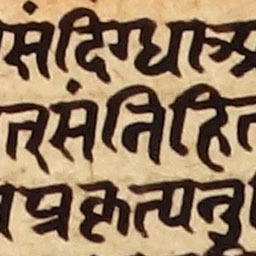 संदिग्धास्त्र
त्संनिहित
प्रकृत्यनु